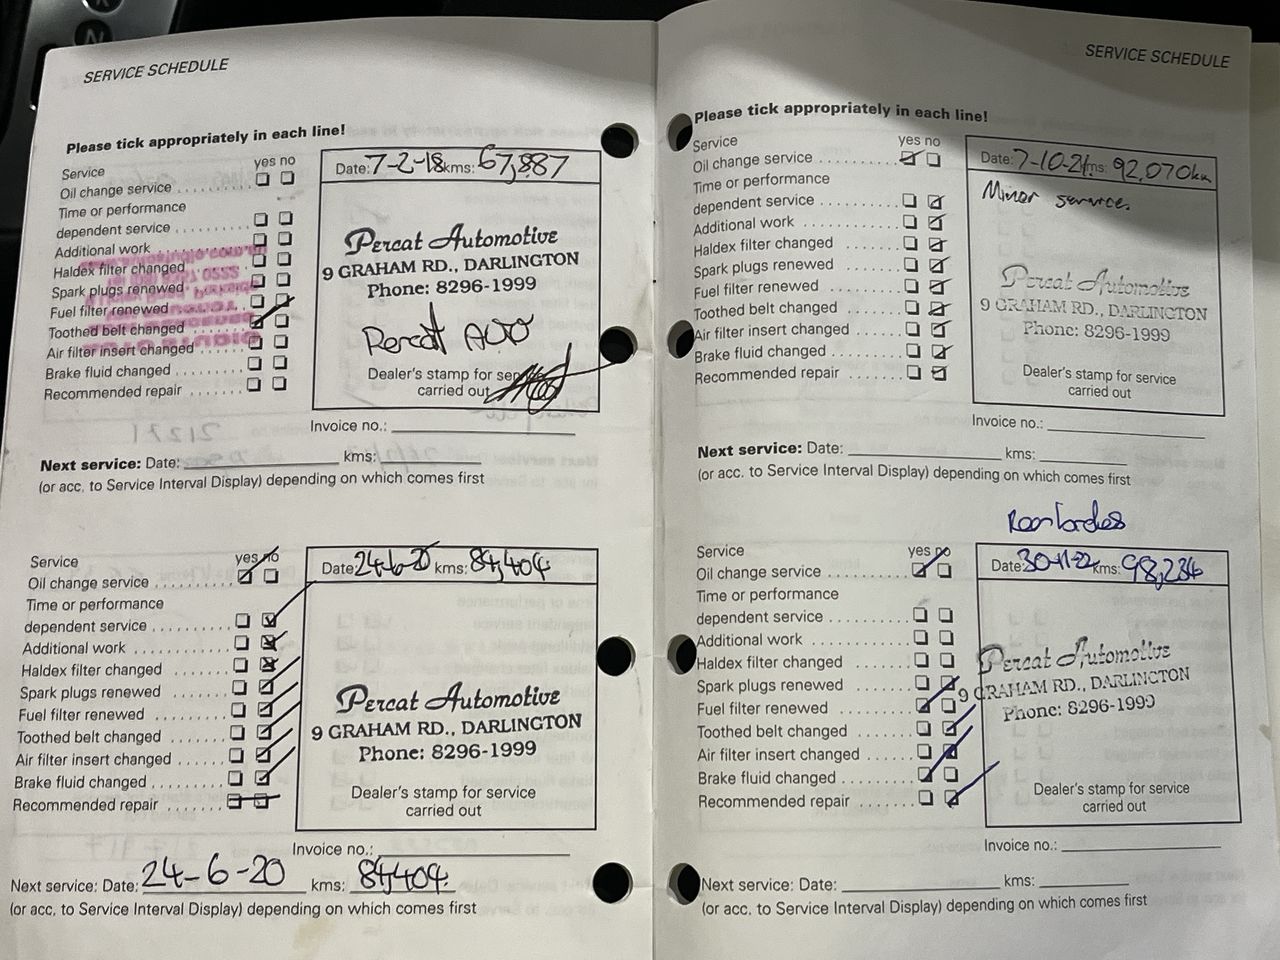 SERVICE SCHEDULE
Please tick appropriately in each line!
Service yes no
Oil change service
Time or performance
dependent service
Additional work
Haldex filter changed
Spark plugs renewed
Fuel filter renewed
Toothed belt changed
Air filter insert changed
Brake fluid changed
Recommended repair
Date: 7-2-18 kms: 67,887
Percat Automotive
9 GRAHAM RD., DARLINGTON
Phone: 8296-1999
Dealer's stamp for service
carried out
Invoice no.:
Next service: Date: kms:
(or acc. to Service Interval Display) depending on which comes first
Service yes no
Oil change service
Time or performance
dependent service
Additional work
Haldex filter changed
Spark plugs renewed
Fuel filter renewed
Toothed belt changed
Air filter insert changed
Brake fluid changed
Recommended repair
Date 24-6-20 kms: 84,404
Percat Automotive
9 GRAHAM RD., DARLINGTON
Phone: 8296-1999
Dealer's stamp for service
carried out
Invoice no.:
Next service: Date: 24-6-20 kms: 84,404
(or acc. to Service Interval Display) depending on which comes first
SERVICE SCHEDULE
Please tick appropriately in each line!
Service yes no
Oil change service
Time or performance
dependent service
Additional work
Haldex filter changed
Spark plugs renewed
Fuel filter renewed
Toothed belt changed
Air filter insert changed
Brake fluid changed
Recommended repair
Date: 7-10-21 kms: 92,070km
Minor service.
Percat Automotive
9 GRAHAM RD., DARLINGTON
Phone: 8296-1999
Dealer's stamp for service
carried out
Invoice no.:
Next service: Date: kms:
(or acc. to Service Interval Display) depending on which comes first
Service yes no
Oil change service
Time or performance
dependent service
Additional work
Haldex filter changed
Spark plugs renewed
Fuel filter renewed
Toothed belt changed
Air filter insert changed
Brake fluid changed
Recommended repair
Date: 30-11-22 kms: 98,234
Percat Automotive
9 GRAHAM RD., DARLINGTON
Phone: 8296-1999
Dealer's stamp for service
carried out
Invoice no.:
Next service: Date: kms:
(or acc. to Service Interval Display) depending on which comes first